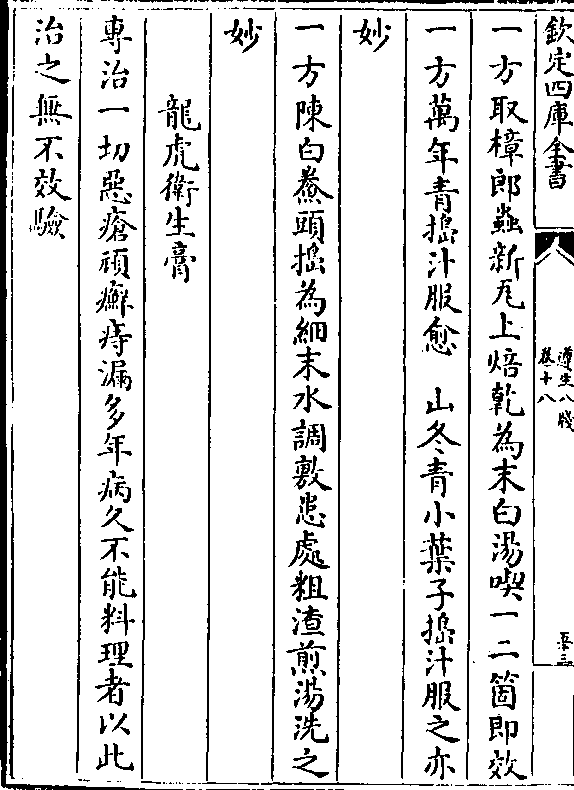 欽定四庫全書
遵生八牋
卷十八
一方取樟郎蟲新瓦上焙乾為末白湯喫一二箇即效
一方萬年青搗汁服愈　山冬青小葉子搗汁服之亦
妙
一方陳白鮝頭搗為細末水調敷患處粗渣煎湯洗之
妙
龍虎衛生膏
專治一切惡瘡頑癬痔漏多年病久不能料理者以此
治之無不效驗